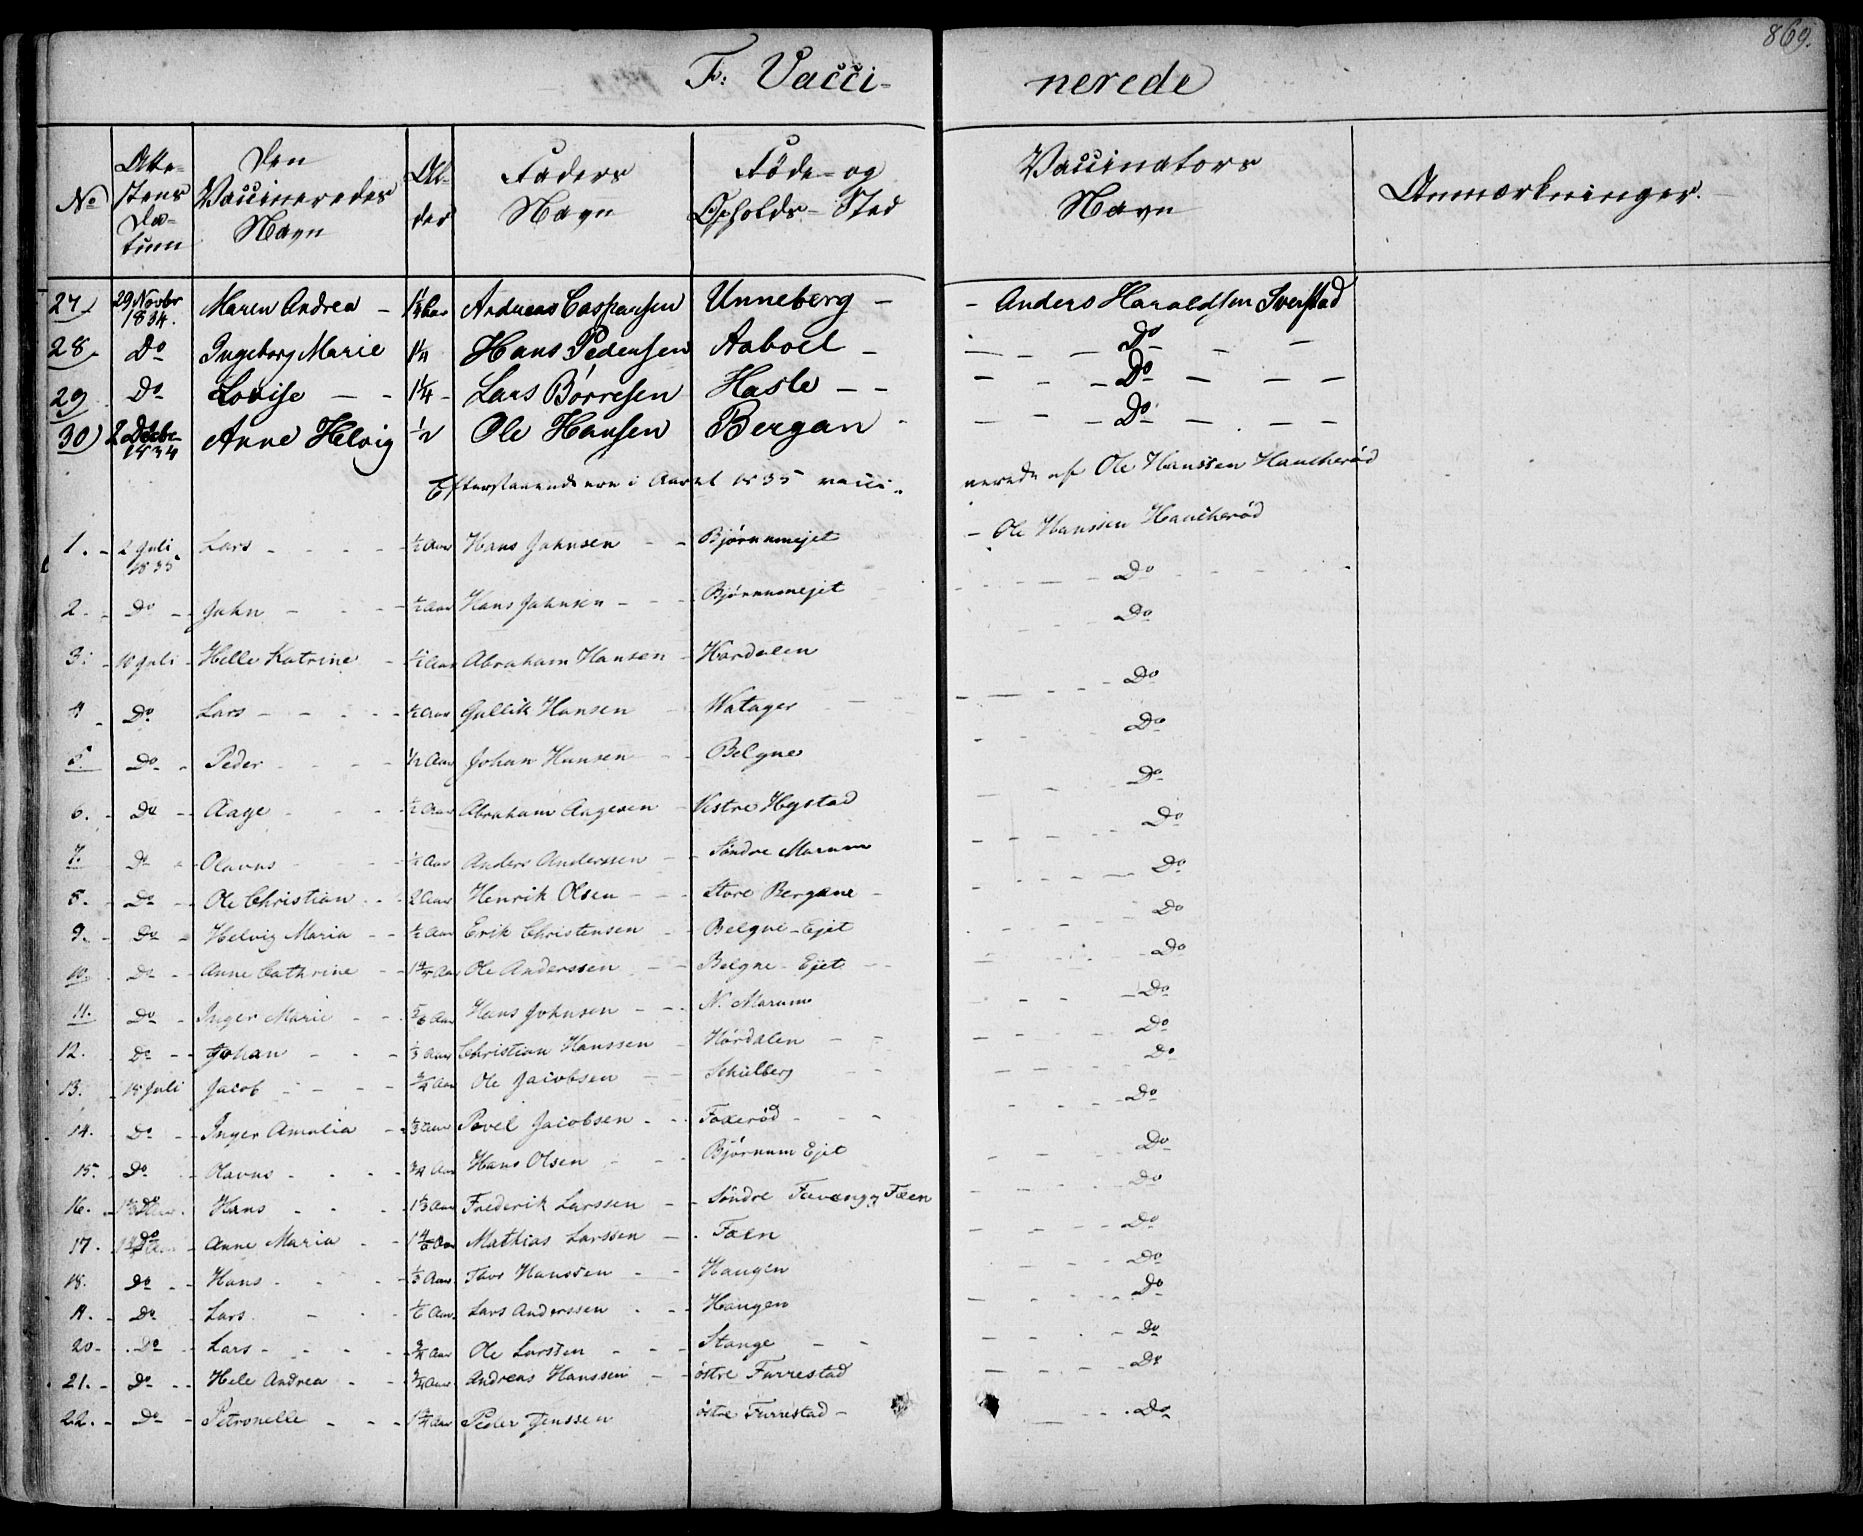 869.
F: Vacci- nerede
No | Atte-stens Da-tum | Den Vaccineredes Navn | Al-der | Faders Navn | Føde- og Opholds-Sted | Vaccinators Navn | Anmærkninger.
27 29 Novbr 1834. Maren Andrea - Andreas Caspersen Unneberg - - Anders Haraldsen Sverstad
28 Do Ingeborg Marie 1¼ Hans Pedersen Aaboel - Do
29 Do Lovise - - 1¼ - Lars Børresen Hasle - - Do
30) 2 Decbr 1834 Anne Helvig ½ Ole Hansen Bergan - Do
Efterstaaende ere i Aaret 1835 vacci- nerede af Ole Hanssen Haucherød
1. - 2 Juli 1835 Lars - - - - ½ Aar Hans Johnsen - - Bjørnumejet - Ole Hanssen Haucherød
2. - Do - John - - - ½ Aar Hans Johnsen - - - Bjørnumejet Do
3. - 10 Juli - Helle Katrine - ½ Aar Abraham Hansen - Hørdalen Do
4 - Do Lars - - - - ½ Aar Gullik Hansen - Watager - Do
5. Do - Peder - - - ½ Aar Johan Hansen - - Belgne Do
6. - Do - Aage - - - ½ Aar Abraham Aagesen - Vestre Hystad Do
7. Do - Olavus - - - ½ Aar Anders Anderssen - - Søndre Marum Do
8. - Do - Ole Christian - - 2 Aar Henrik Olsen - - - Store Bergane - Do
9. - Do - Helvig Maria - - ½ Aar Erik Christensen - - Belgne-Ejet Do
10. Do - Anne Cathrine - - Ole Anderssen - - Belgne-Ejet - - Do
11. Do - Inger Marie - - 5/6 Aar Hans Johnsen - - N. Marum Do
12. Do - - Johan - - - ⅓ Aar Christian Hanssen - Hørdalen - - Do
13. 18 Juli Jacob - - - - ¾ Aar Ole Jacobsen - - Schielberg - - Do
14. - Do - Inger Amalia - Povel Jacobsen - - Foxerød - - - Do
15. Do - Olavus - - - ¾ Aar Hans Olsen - - - Bjørnum Ejet Do
16. - Do - Hans - - - 1⅓ Aar Frederik Larssen - - Søndre Fæen Do
17. - Do - Anne Maria - - Mathias Larssen - - Fæen Do
18. Do - Hans - - - ⅓ Aar Thor Hanssen - - Haugen Do
19. - Do - Lars - - - Lars Anderssen - - Haugen Do
20 - - Do - Lars - - - - ¾ Aar Ole Larssen - - - Stange - - Do
21. - Do - - Hele Andrea - - ¾ Aar Andreas Hanssen - - østre Furrestad Do
22. - Do - Petronelle - - - Peder Jenssen østre Furrestad - Do